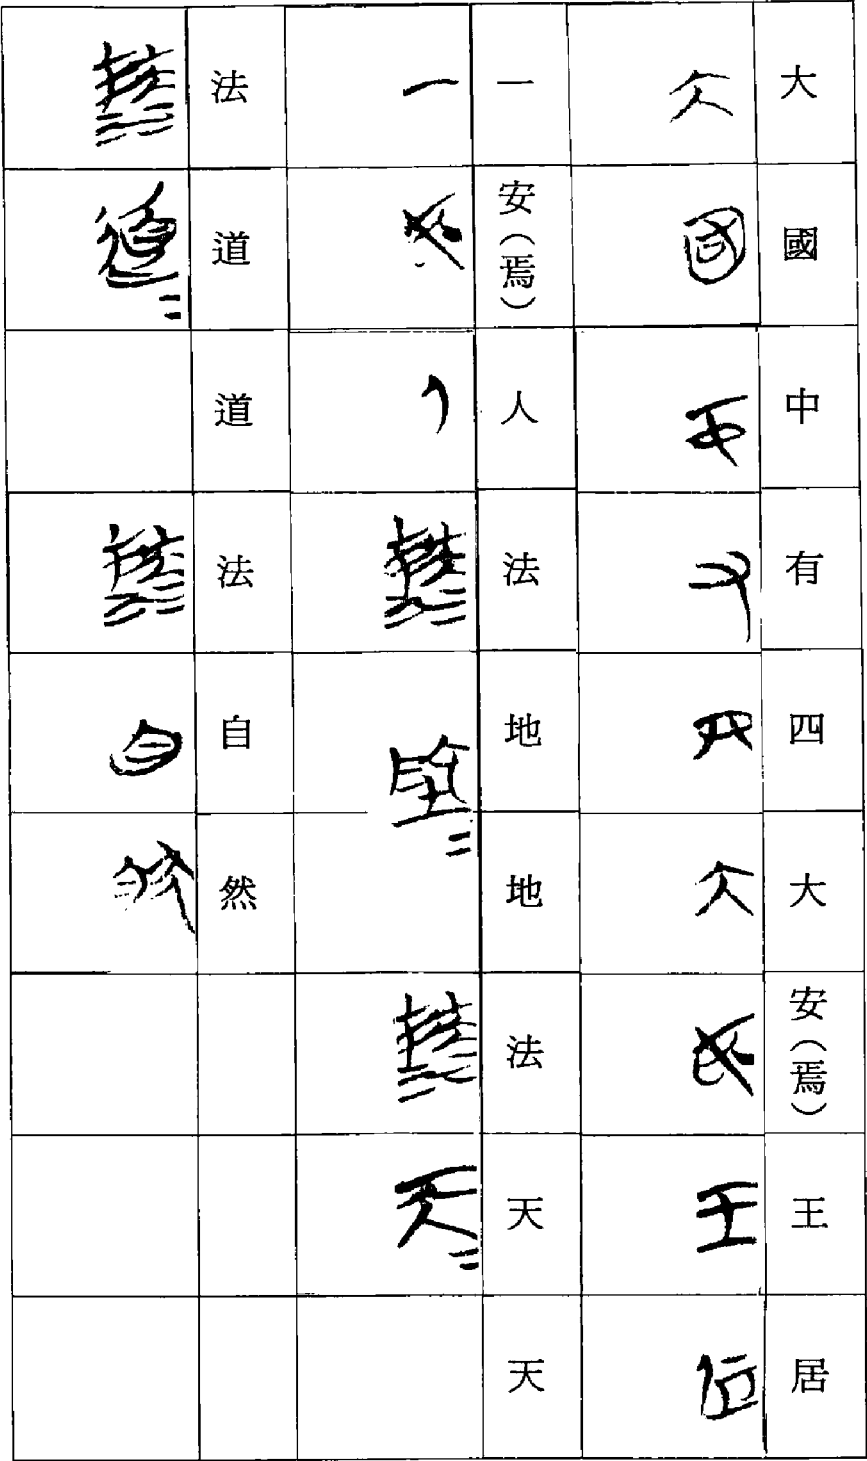 大國中有四大安（焉）王居
一安（焉）人法地地法天天
法道道法自然